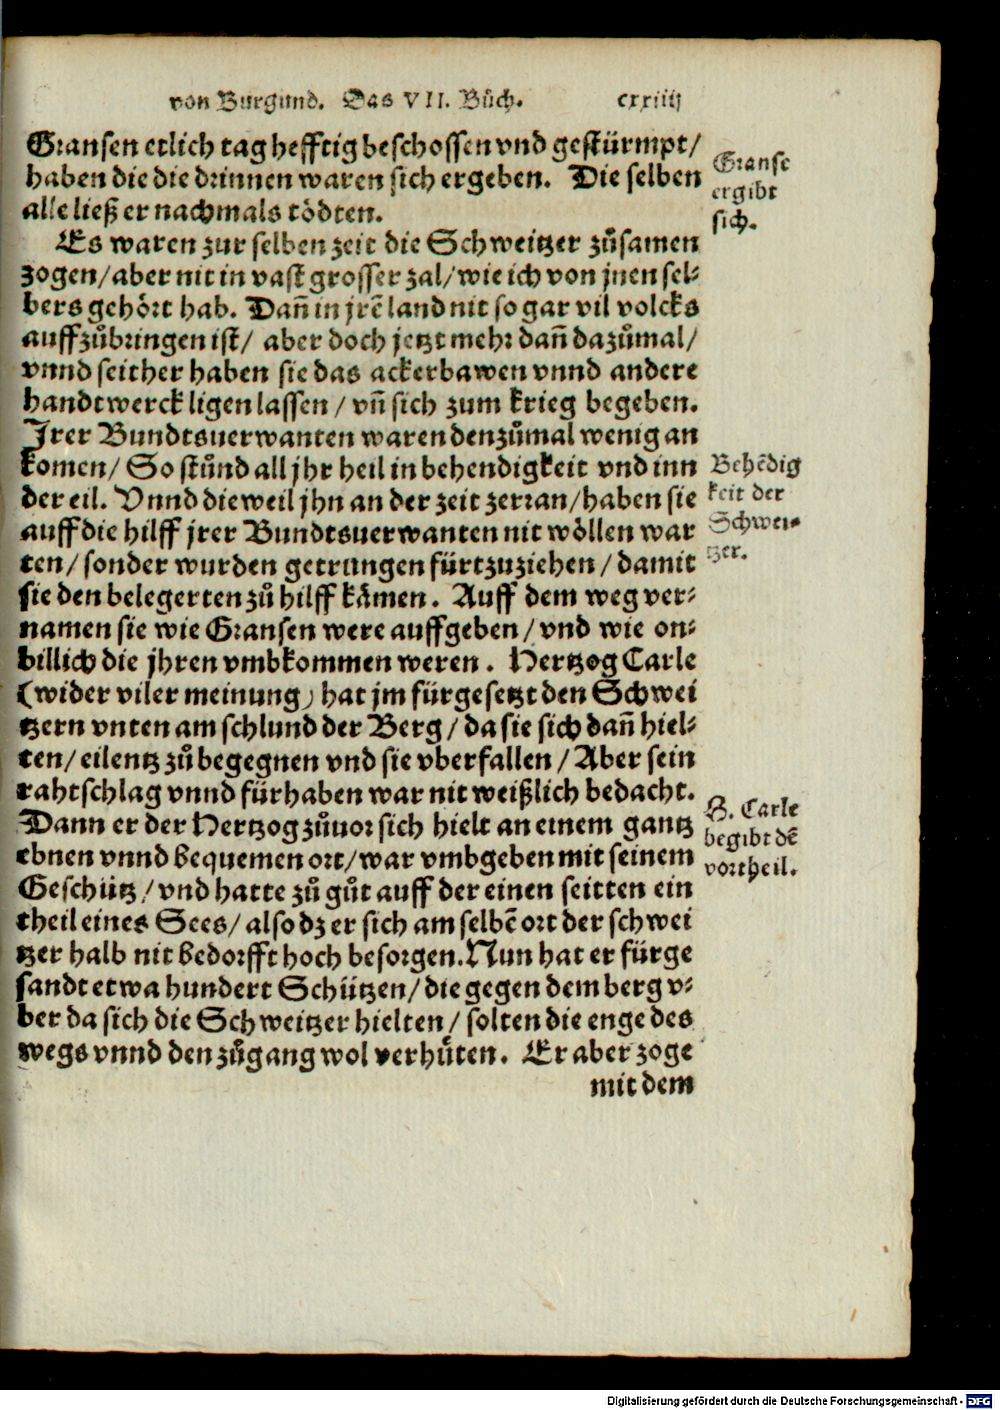 von Burgund. Das VII. Bůch. cxxiiij
Gransen etlich tag hefftig beschossen vnd gestürmpt/
haben die die drinnen waren sich ergeben. Die selben
alle ließ er nachmals tödten.
Granse
ergibt
sich.
Es waren zur selben zeit die Schweitzer zůsamen
zogen/ aber nit in vast grosser zal/ wie ich von jnen sel-
bers gehört hab. Dañ in jrē land nit so gar vil volcks
auffzůbringen ist/ aber doch jetzt mehr dañ dazůmal/
vnnd seither haben sie das ackerbawen vnnd andere
handtwerck ligen lassen/ vñ sich zum krieg begeben.
Jrer Bundtsuerwanten waren denzůmal wenig an
komen/ So stůnd all jhr heil in behendigkeit vnd inn
der eil. Vnnd dieweil jhn an der zeit zerran/ haben sie
auff die hilff jrer Bundtsuerwanten nit wöllen war
ten/ sonder wurden getrungen fürtzuziehen/ damit
sie den belegerten zů hilff kämen. Auff dem weg ver-
namen sie wie Gransen were auffgeben/ vnd wie on-
billich die jhren vmbkommen weren. Hertzog Carle
(wider viler meinung) hat jm fürgesetzt den Schwei
tzern vnten am schlund der Berg/ da sie sich dañ hiel-
ten/ eilentz zů begegnen vnd sie vberfallen/ Aber sein
rahtschlag vnnd fürhaben war nit weißlich bedacht.
Behēdig
keit der
Schwei-
tzer.
Dann er der Hertzog zůuor sich hielt an einem gantz
ebnen vnnd bequemen ort/ war vmbgeben mit seinem
Geschütz/ vnd hatte zů gůt auff der einen seitten ein
theil eines Sees/ also dz er sich am selbē ort der schwei
tzer halb nit bedorfft hoch besorgen. Nun hat er fürge
sandt etwa hundert Schützen/ die gegen dem berg v-
ber da sich die Schweitzer hielten/ solten die enge des
wegs vnnd den zůgang wol verhůten. Er aber zoge
H. Carle
begibt dē
vortheil.
mit dem
Digitalisierung gefördert durch die Deutsche Forschungsgemeinschaft - DFG